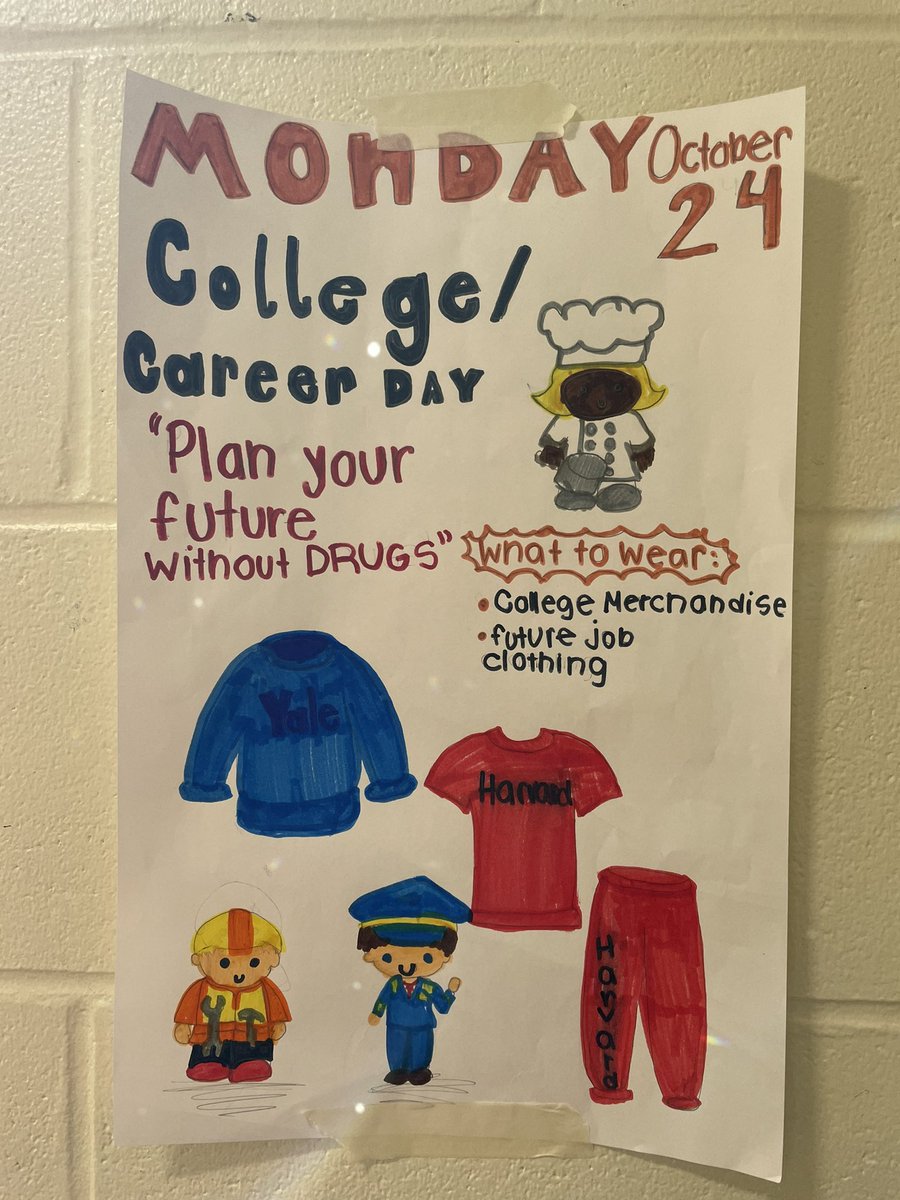 MONDAY October
24
College/
Career DAY
"Plan your
future
without DRUGS"
what to wear:
• College Merchandise
• future job
clothing
Yale
Harvard
Harvard